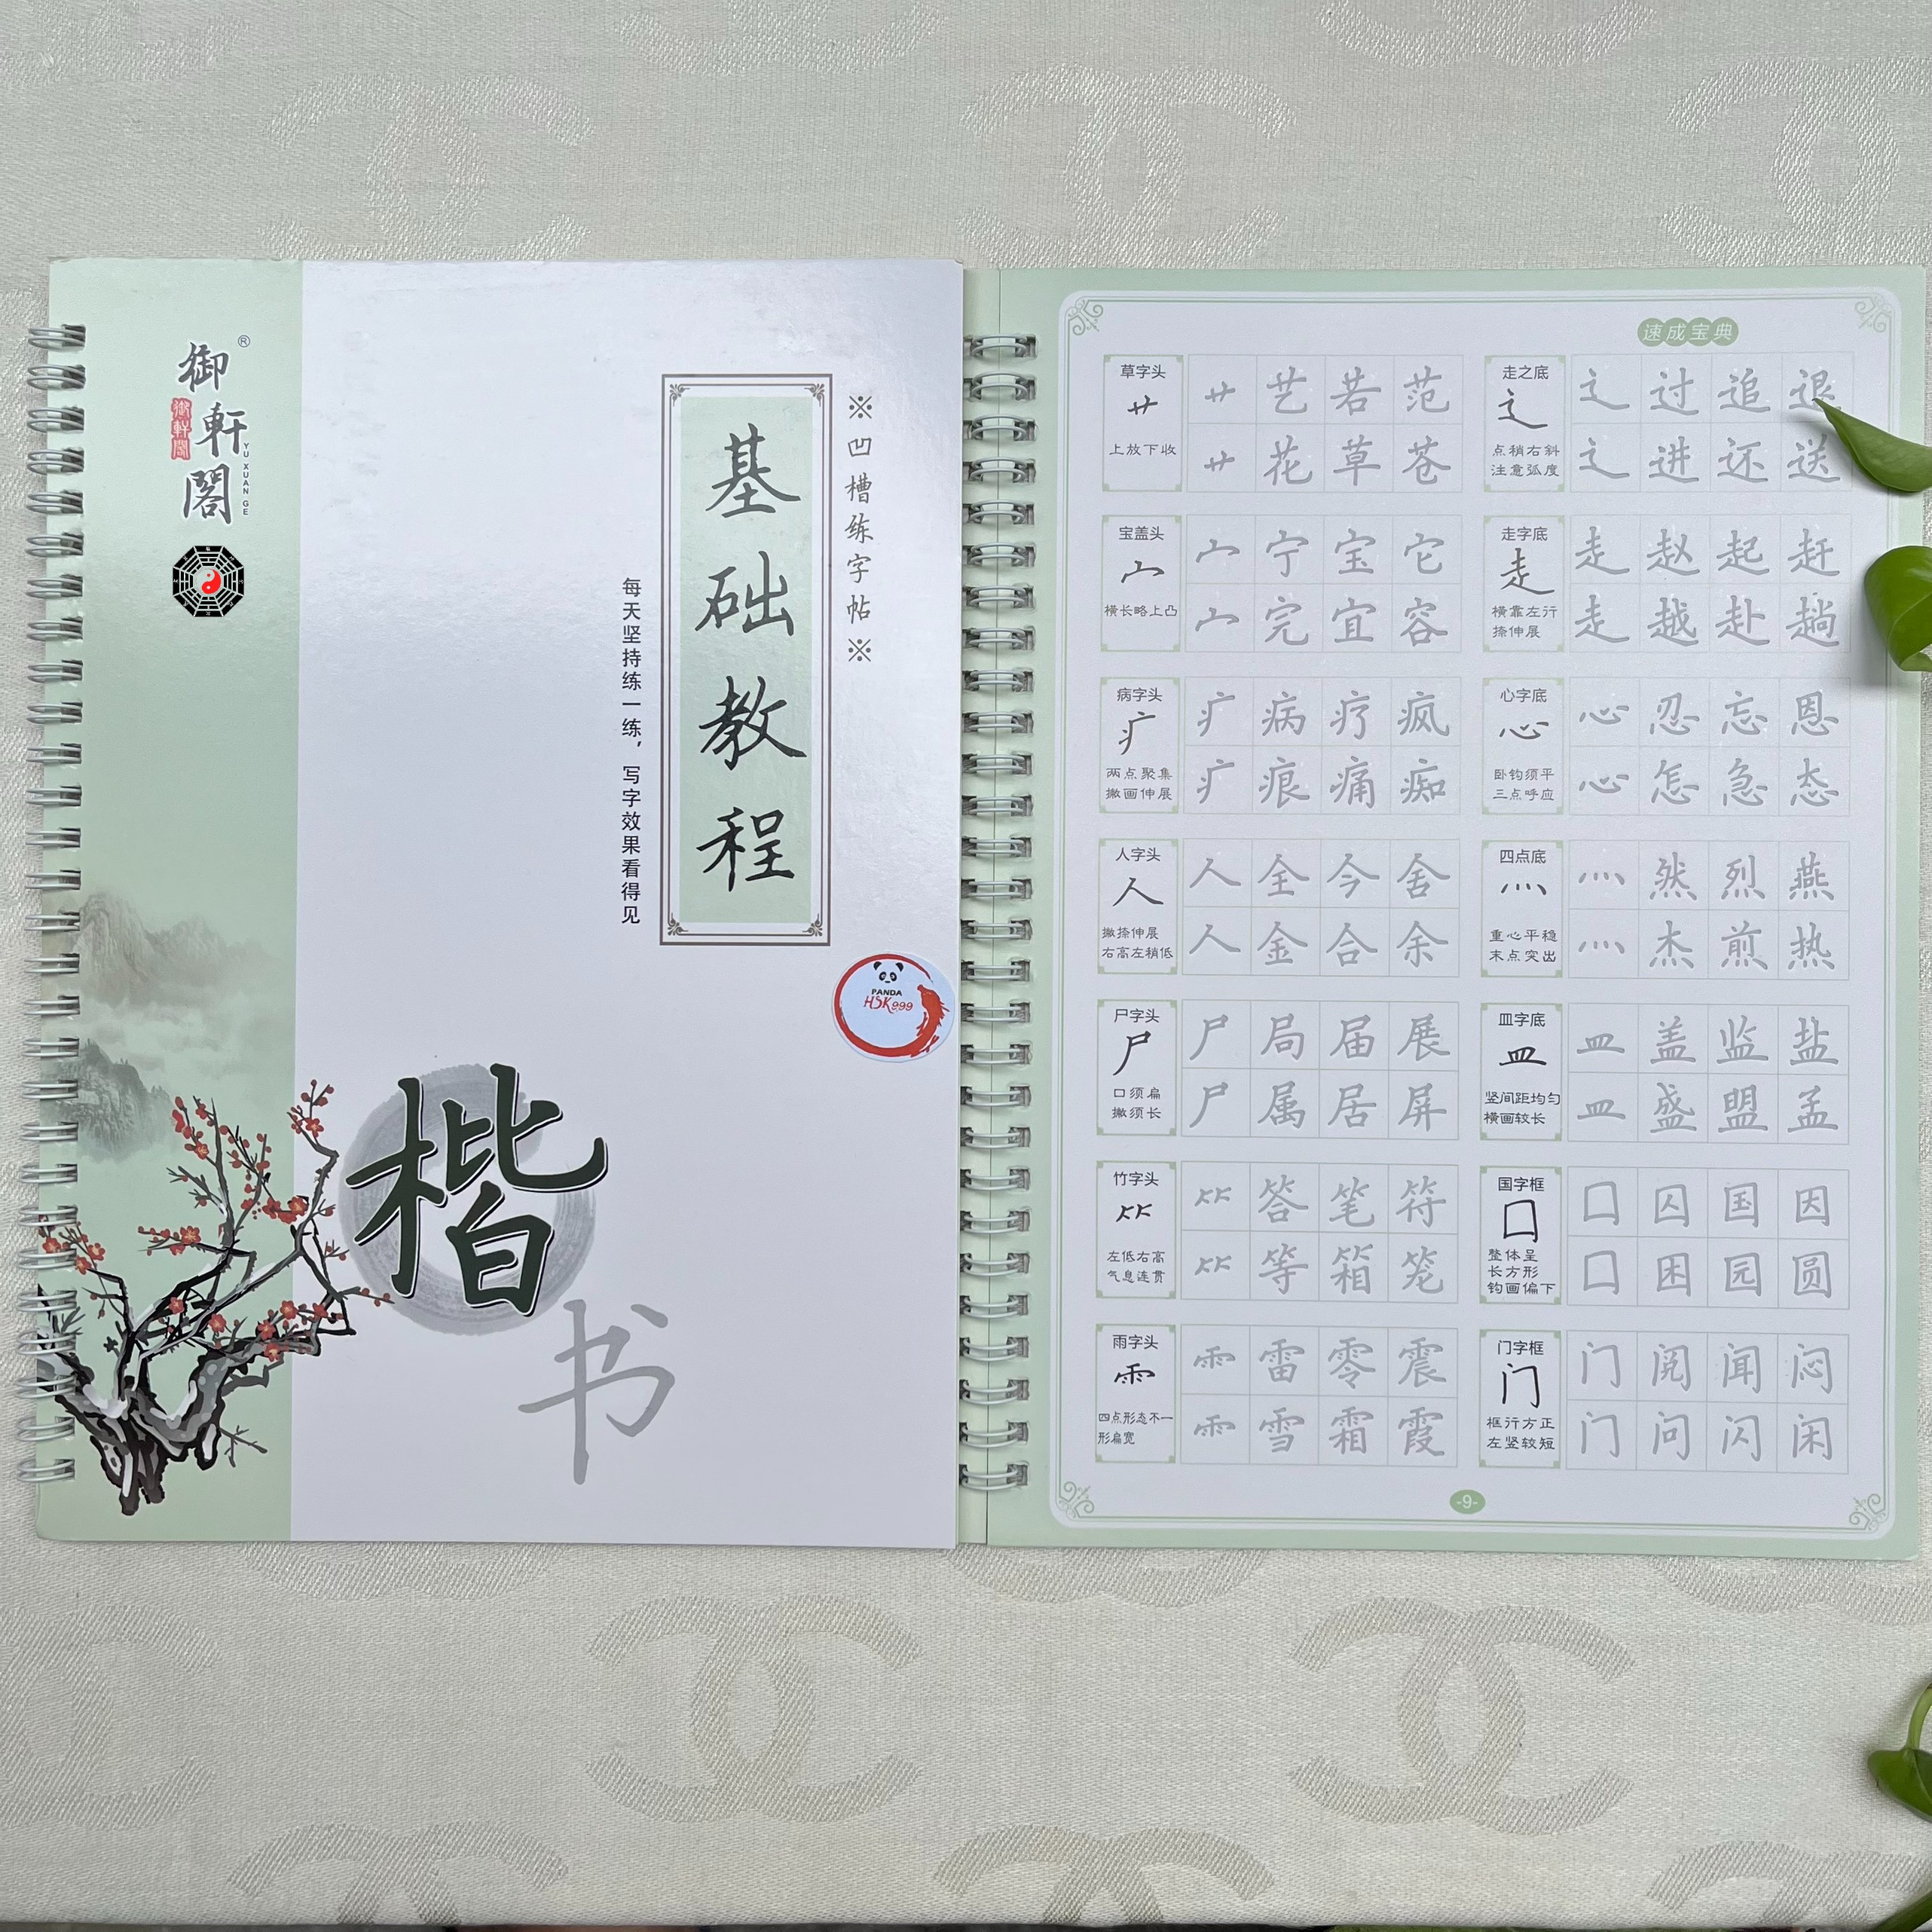 御軒閣
®
御軒閣
YU XUAN GE
※凹槽练字帖※
基础教程
每天坚持练一练，写字效果看得见
PANDA
HSK999
楷书
速成宝典
草字头
艹
上放下收
艹 艺 若 范
艹 花 草 苍
宝盖头
宀
横长略上凸
宀 宁 宝 它
宀 完 宜 容
病字头
疒
两点聚集
撇画伸展
疒 病 疗 疯
疒 痕 痛 痴
人字头
人
撇捺伸展
右高左稍低
人 全 今 舍
人 金 合 余
尸字头
尸
口须扁
撇须长
尸 局 届 展
尸 属 居 屏
竹字头
⺮
左低右高
气息连贯
⺮ 答 笔 符
⺮ 等 箱 笼
雨字头
⻗
四点形态不一
形扁宽
⻗ 雷 零 震
⻗ 雪 霜 霞
走之底
辶
点稍右斜
注意弧度
辶 过 追 退
辶 进 还 送
走字底
走
横靠左行
捺伸展
走 赵 起 赶
走 越 赴 趟
心字底
心
卧钩须平
三点呼应
心 忍 忘 恩
心 怎 急 态
四点底
灬
重心平稳
末点突出
灬 然 烈 燕
灬 杰 煎 热
皿字底
皿
竖间距均匀
横画较长
皿 盖 监 盐
皿 盛 盟 孟
国字框
囗
整体呈
长方形
钩画偏下
囗 囚 国 因
囗 困 园 圆
门字框
门
框行方正
左竖较短
门 阅 闻 闷
门 问 闪 闲
-9-